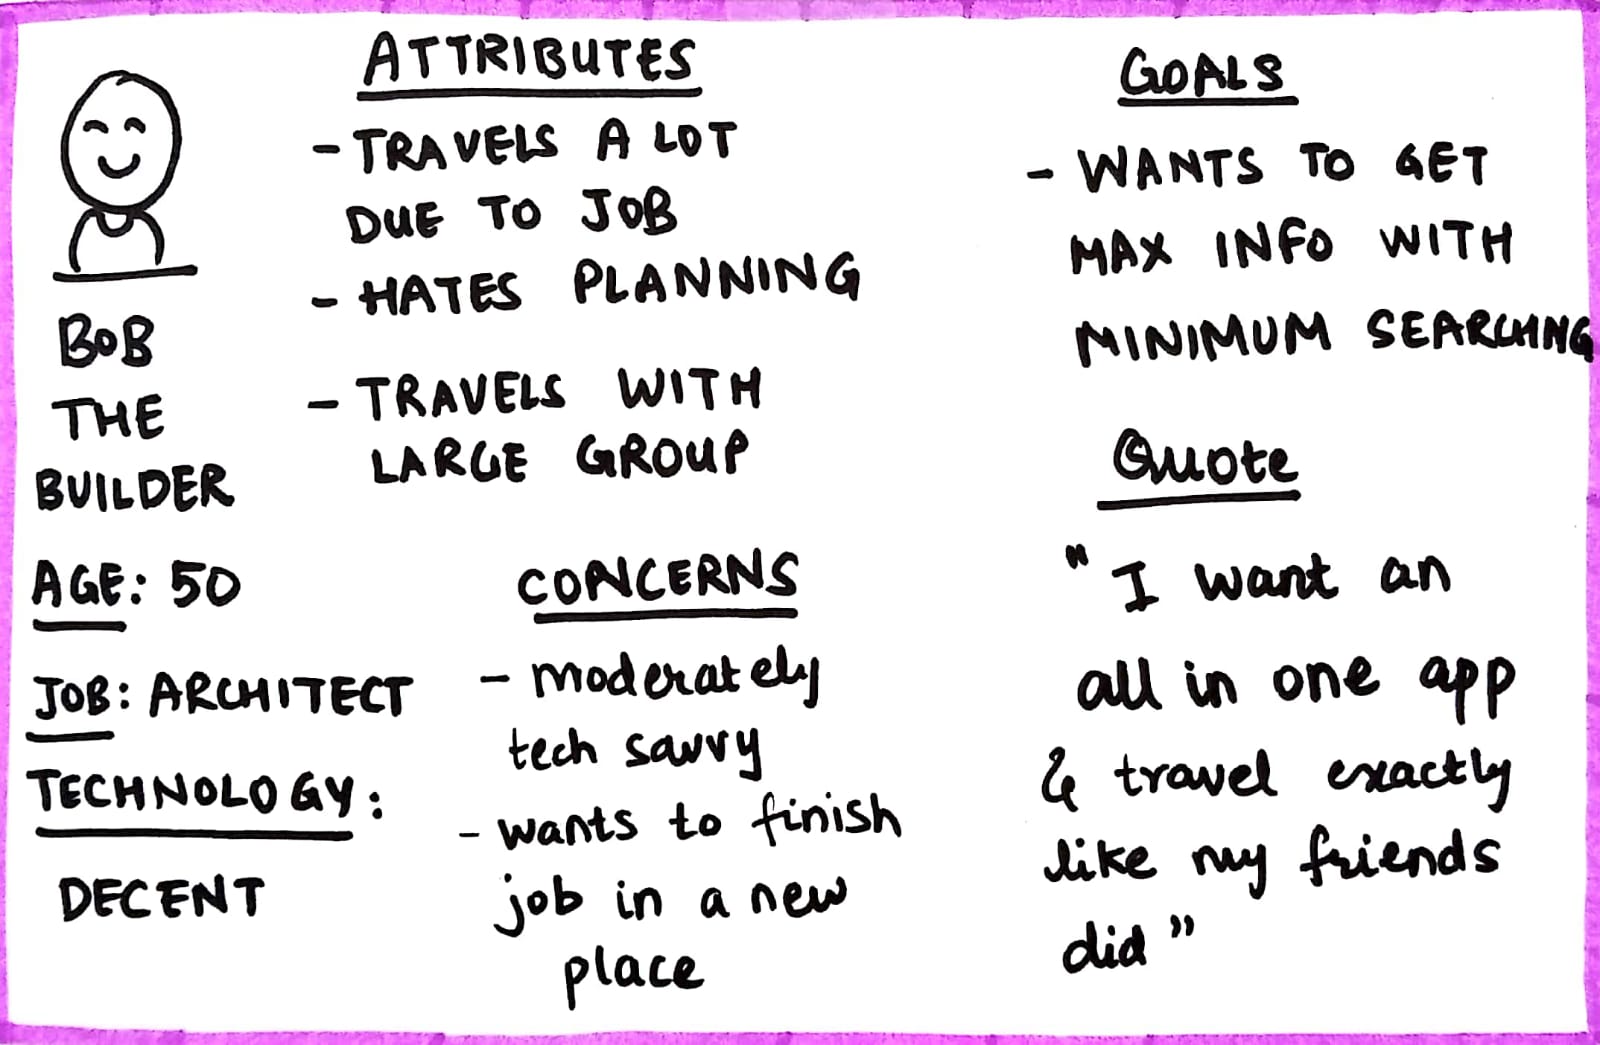 BOB
THE
BUILDER
AGE: 50
JOB: ARCHITECT
TECHNOLOGY:
DECENT
ATTRIBUTES
- TRAVELS A LOT
DUE TO JOB
- HATES PLANNING
- TRAVELS WITH
LARGE GROUP
CONCERNS
- moderately
tech savvy
- wants to finish
job in a new
place
GOALS
- WANTS TO GET
MAX INFO WITH
MINIMUM SEARCHING
Quote
"I want an
all in one app
& travel exactly
like my friends
did"